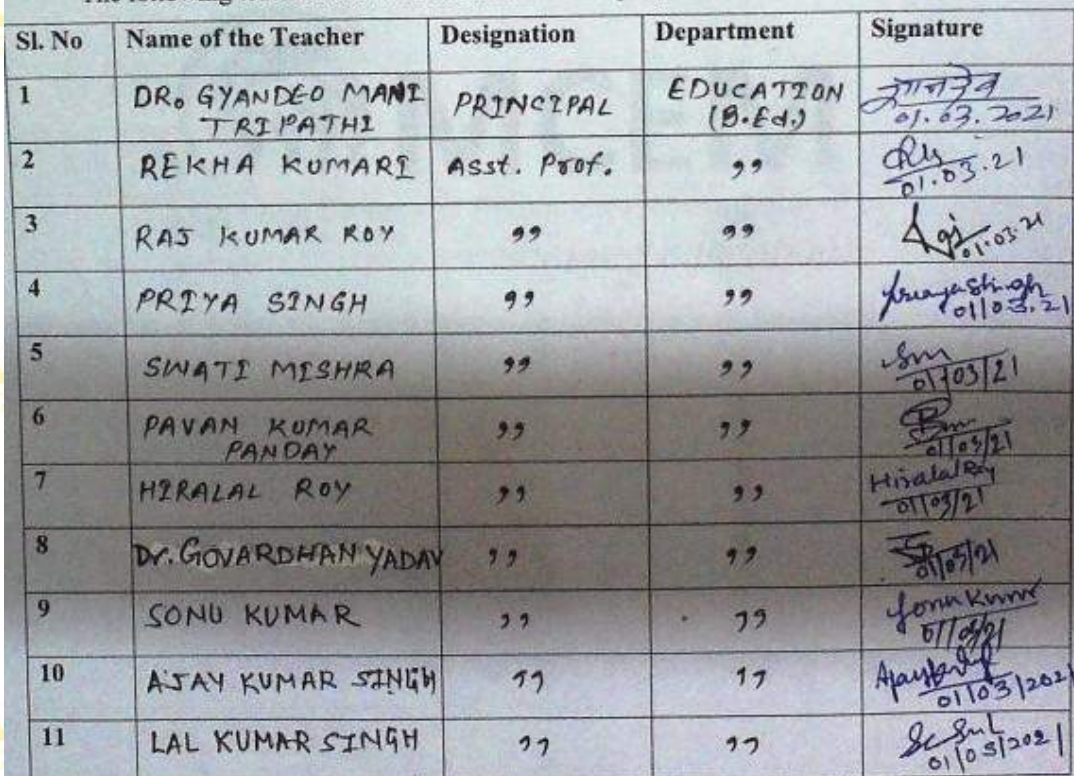 Sl. No Name of the Teacher Designation Department Signature
1 DR. GYANDEO MANI TRIPATHI PRINCIPAL EDUCATION (B.Ed.) ज्ञानदेव 01.03.2021
2 REKHA KUMARI Asst. Prof. ,, 01.03.21
3 RAJ KUMAR ROY ,, ,, Raj 01.03.21
4 PRIYA SINGH ,, ,, Priya Singh 01/03.21
5 SWATI MISHRA ,, ,, Sm 01/03/21
6 PAVAN KUMAR PANDAY ,, ,, 01/03/21
7 HIRALAL ROY ,, ,, Hiralal Roy 01/03/21
8 Dr. GOVARDHAN YADAV ,, ,, 01/03/21
9 SONU KUMAR ,, ,, Sonu Kumar 01/03/21
10 AJAY KUMAR SINGH ,, ,, 01/03/2021
11 LAL KUMAR SINGH ,, ,, 01/03/2021